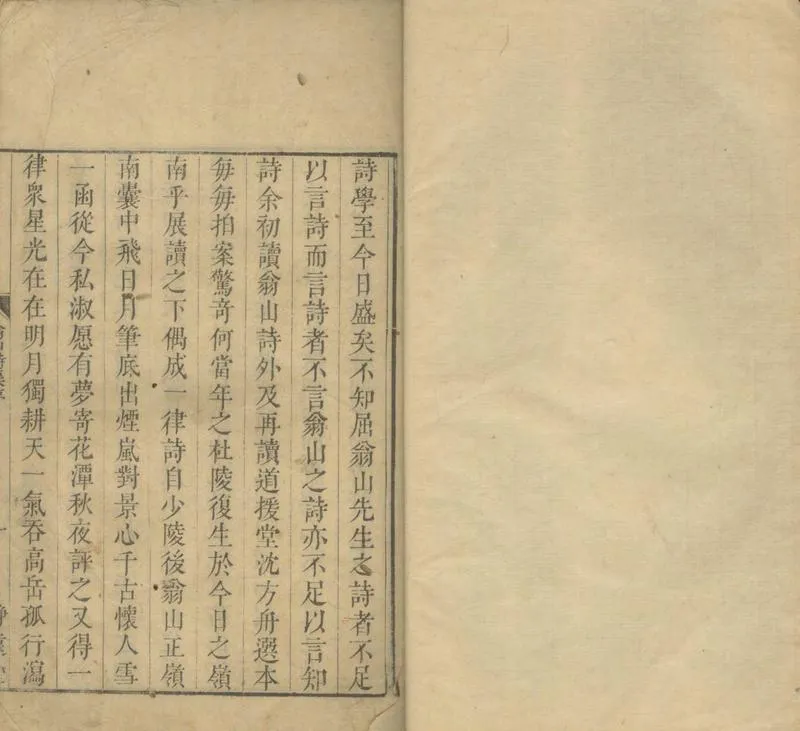 詩學至今日盛矣不知屈翁山先生之詩者不足
以言詩而言詩者不言翁山之詩亦不足以言知
詩余初讀翁山詩外及再讀道援堂沈方舟選本
每每拍案驚奇何當年之杜陵復生於今日之嶺
南乎展讀之下偶成一律詩自少陵後翁山正嶺
南囊中飛日月筆底出煙嵐對景心千古懷人雪
一函從今私淑愿有夢寄花潭秋夜評之又得一
律衆星光在在明月獨耕天一氣吞高岳孤行瀉